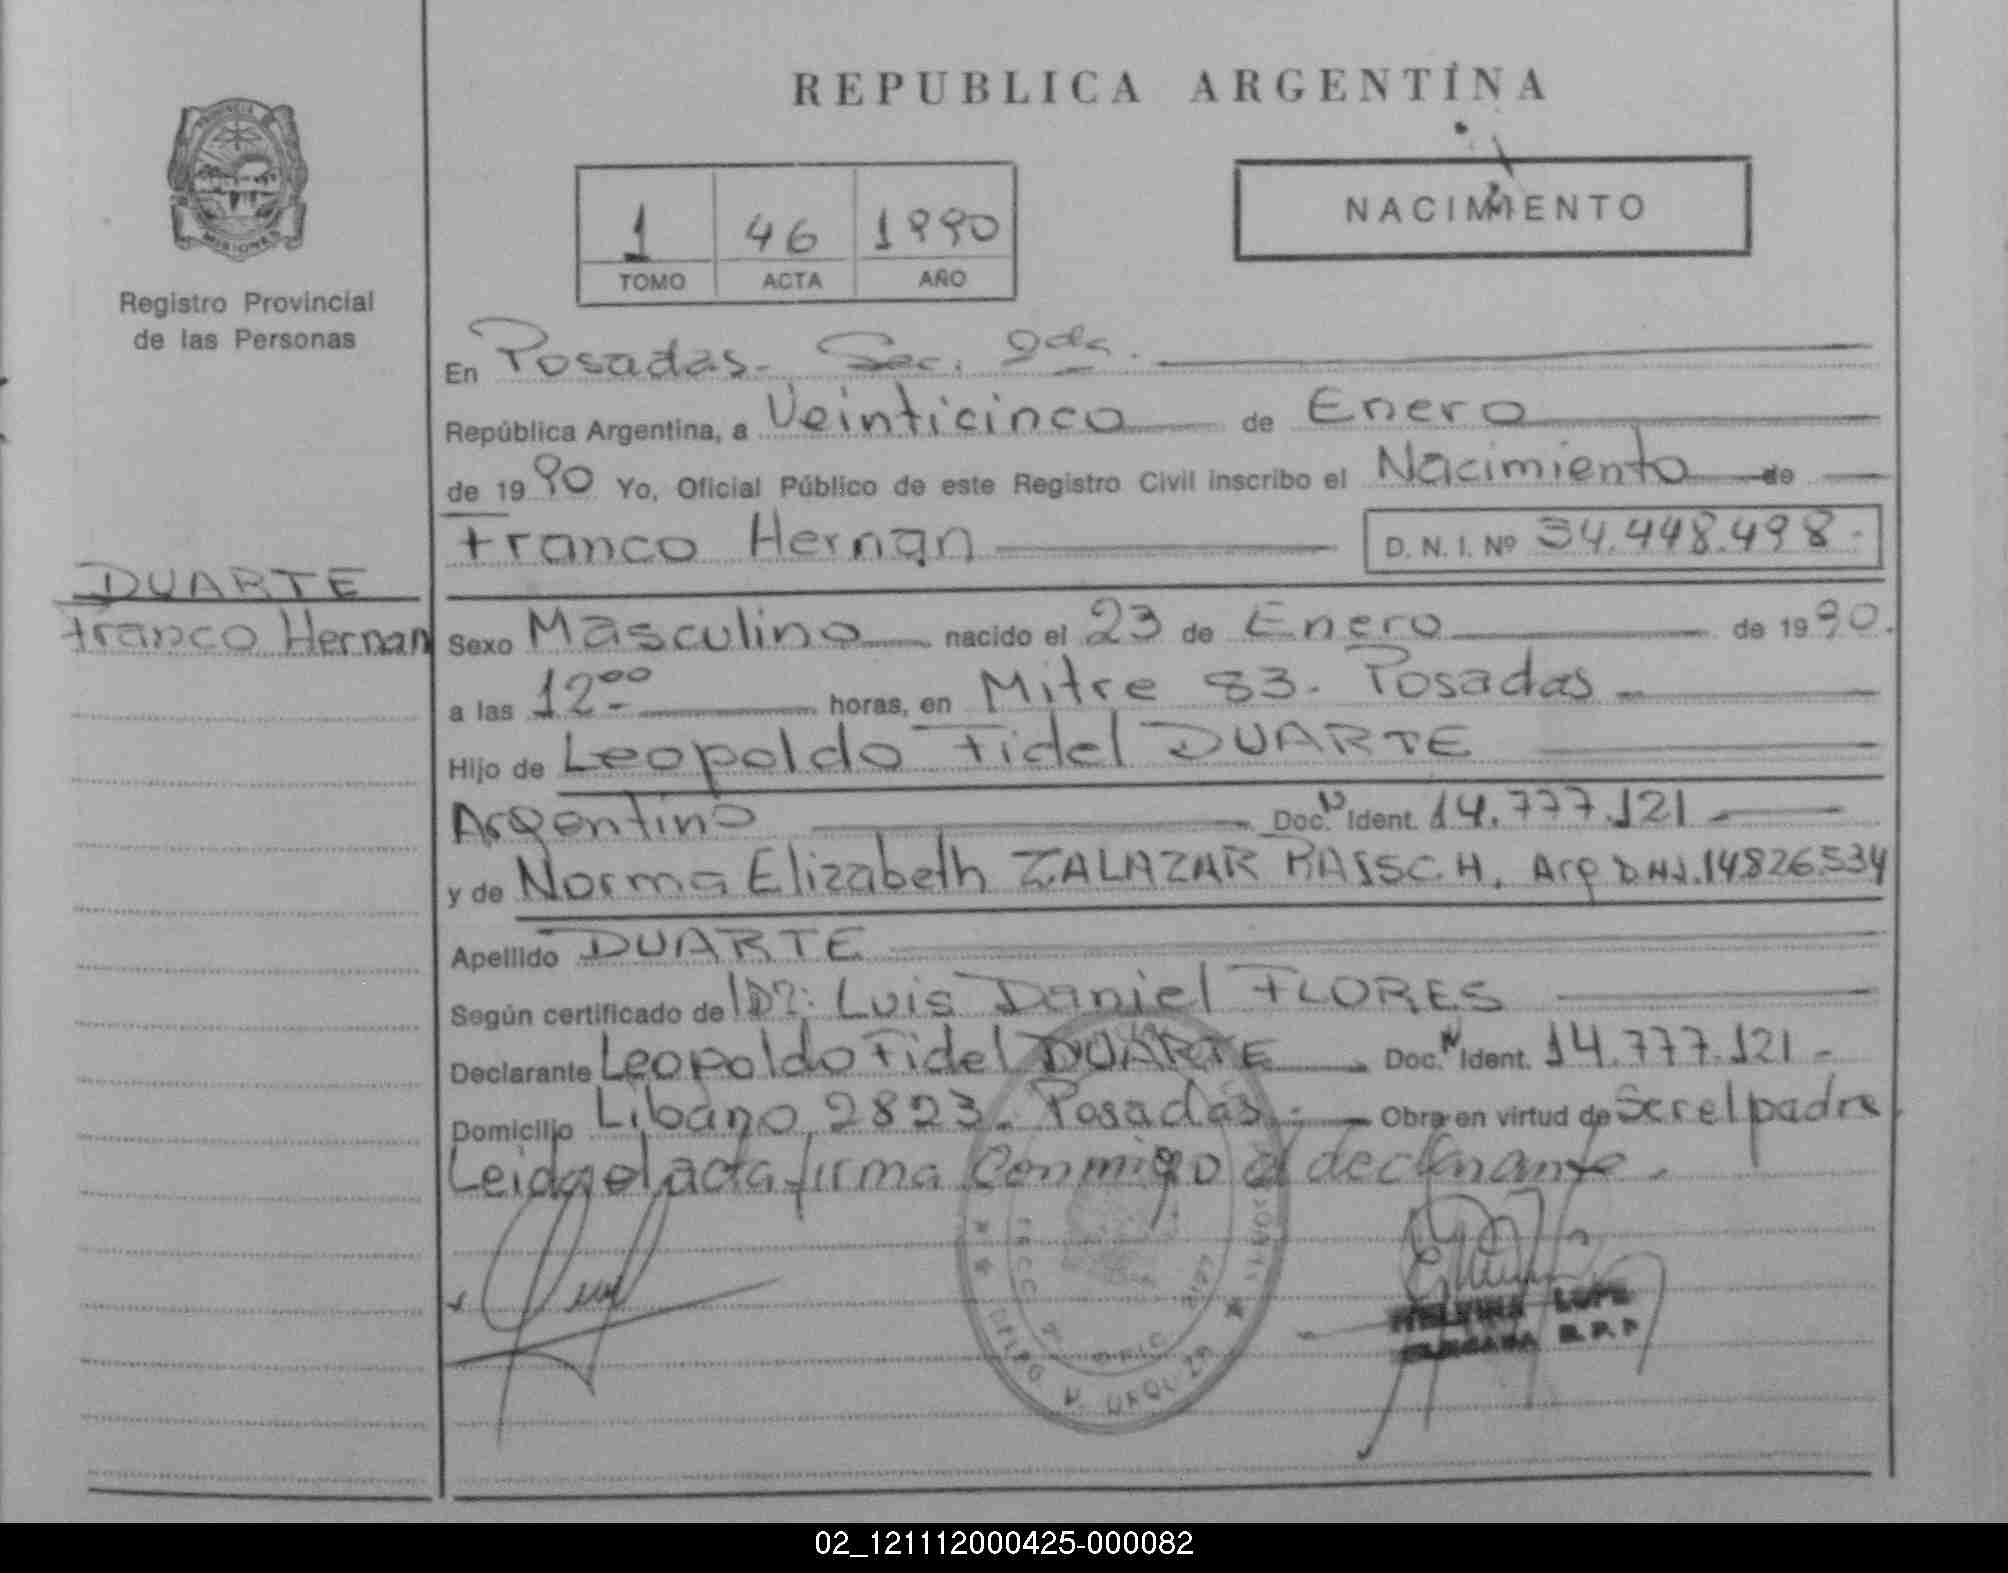 REPUBLICA ARGENTINA
PROVINCIA
MISIONES
Registro Provincial
de las Personas
1 46 1990
TOMO ACTA AÑO
NACIMIENTO
En Posadas- Sec. 2da.
República Argentina, a Veinticinco de Enero
de 1990 Yo, Oficial Público de este Registro Civil inscribo el Nacimiento de
Franco Hernan D. N. I. Nº 34.448.498-
DUARTE
Franco Hernan
Sexo Masculino nacido el 23 de Enero de 1990.
a las 12-00 horas, en Mitre 83. Posadas
Hijo de Leopoldo Fidel DUARTE
Argentino Doc. N Ident. 14.777.121
y de Norma Elizabeth ZALAZAR Arg D.N.I. 14826.534
Apellido DUARTE
Según certificado de Luis Daniel FLORES
Declarante Leopoldo Fidel DUARTE Doc. N Ident. 14.777.121-
Domicilio Libano 2823. Posadas.- Obra en virtud de Ser el padre
Leida el acta firma Conmigo el declarante.
URQUIZA
R.P.P.
02_121112000425-000082